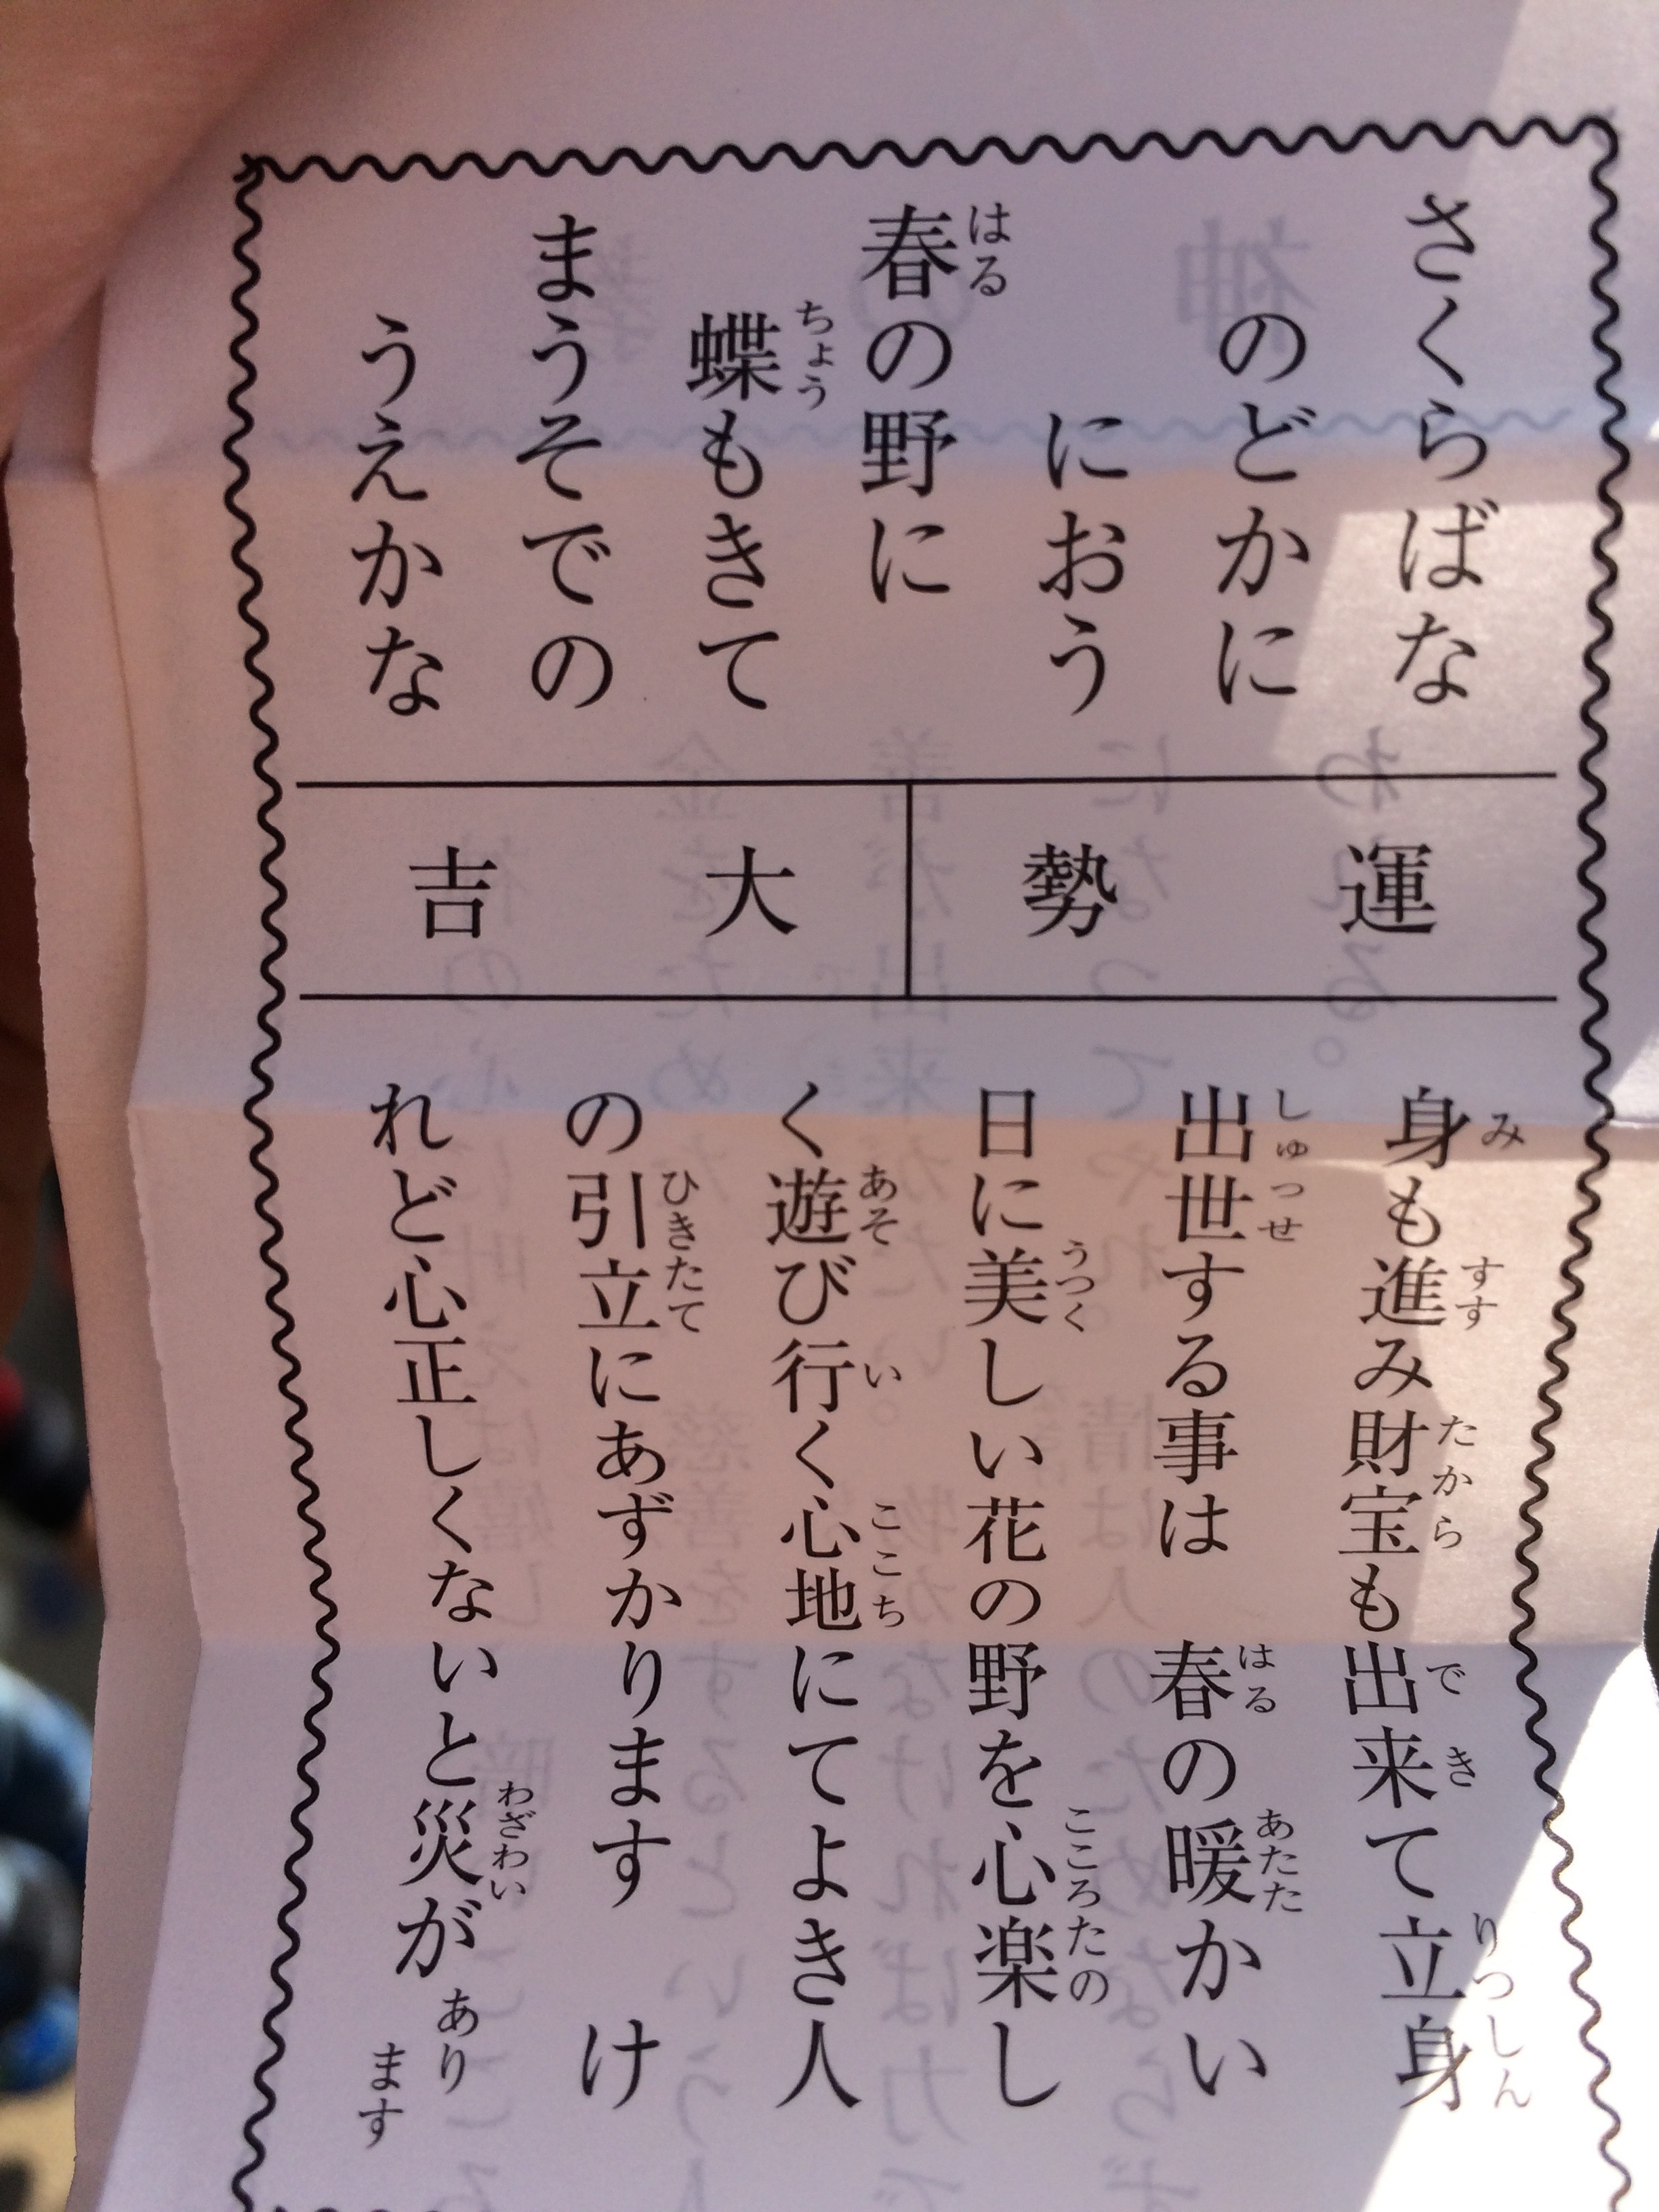 さくらばな
のどかに
におう
春の野に
蝶もきて
まうそでの
うえかな
運勢 大吉
身も進み財宝も出来て立身
出世する事は 春の暖かい
日に美しい花の野を心楽し
く遊び行く心地にてよき人
の引立にあずかります け
れど心正しくないと災があり
ます